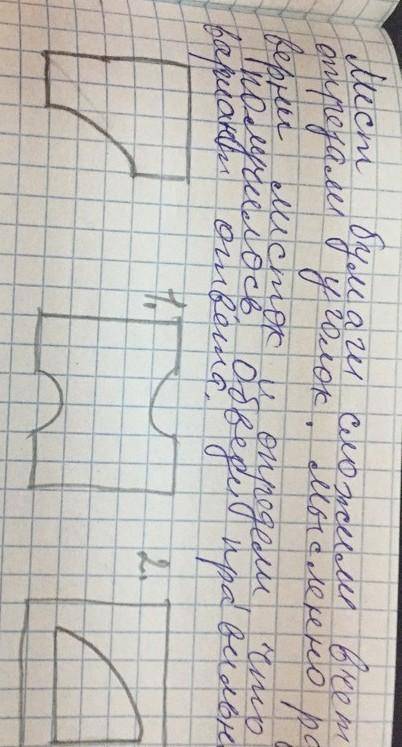 Лист бумаги сложили вчет
отрезали уголок. Мысленно ра
верни листок и определи что
получилось Обведи правильн
варианты ответа.
1.
2.